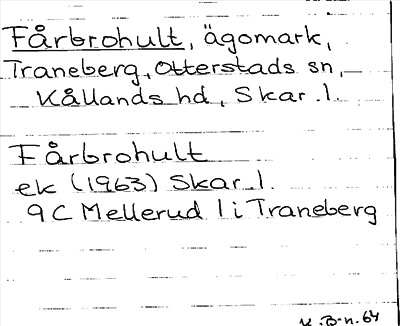 Fårbrohult, ägomark,
Traneberg, Otterstads sn,
Kållands hd, Skar. l.
Fårbrohult
ek (1963) Skar. l.
9 C Mellerud l i Traneberg